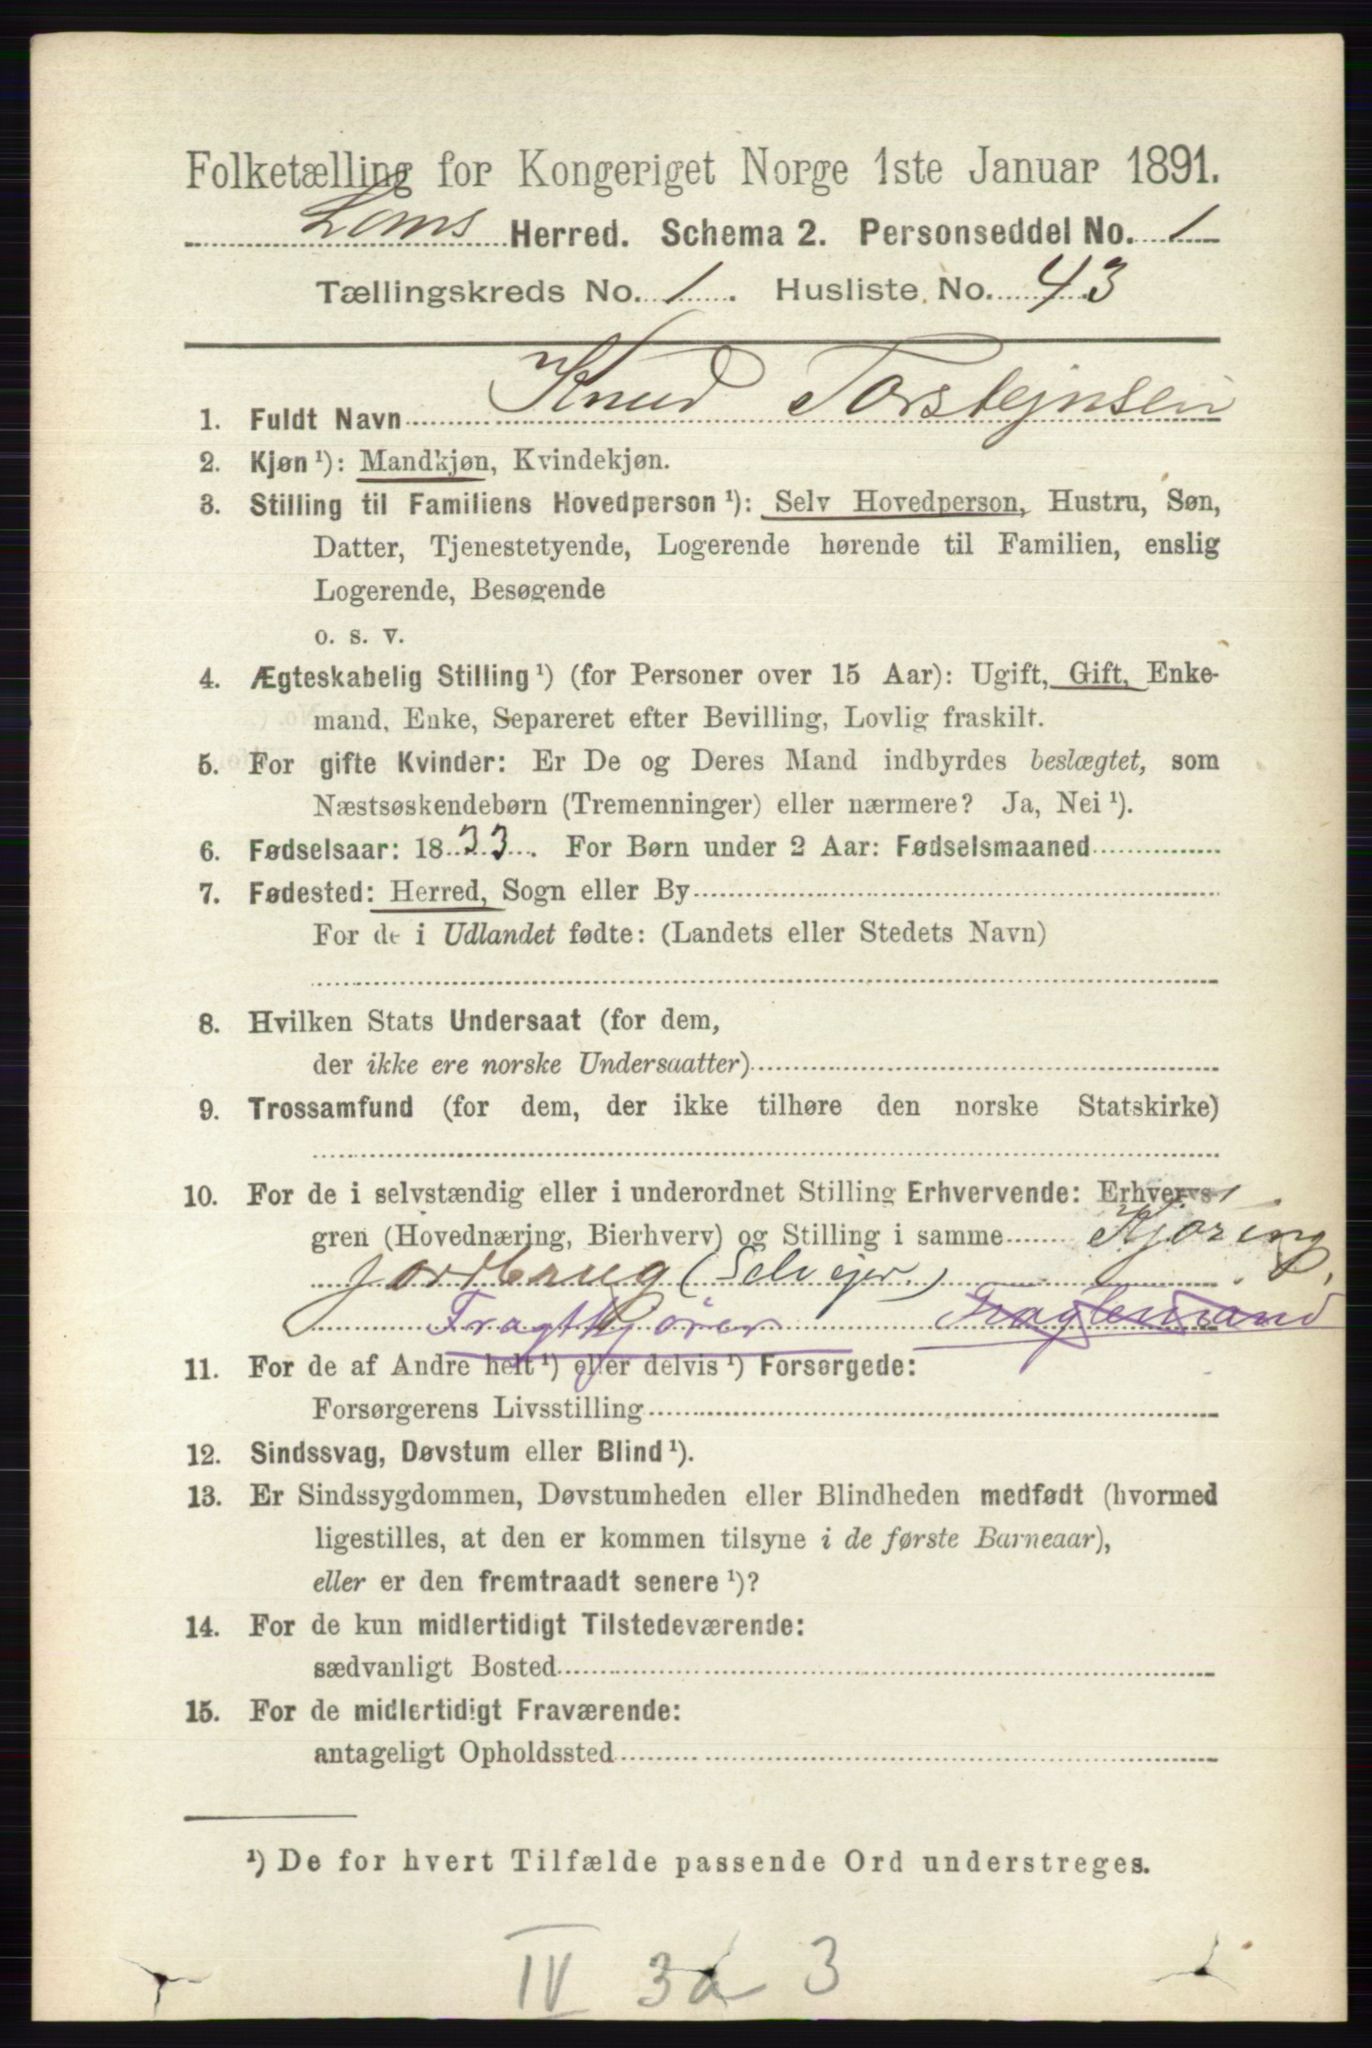 Folketælling for Kongeriget Norge 1ste Januar 1891.
Loms Herred. Schema 2. Personseddel No. 1
Tællingskreds No. 1. Husliste No. 43
1. Fuldt Navn Knud Torstejnsen
2. Kjøn ¹): Mandkjøn, Kvindekjøn.
3. Stilling til Familiens Hovedperson ¹): Selv Hovedperson, Hustru, Søn,
Datter, Tjenestetyende, Logerende hørende til Familien, enslig
Logerende, Besøgende
o. s. v.
4. Ægteskabelig Stilling ¹) (for Personer over 15 Aar): Ugift, Gift, Enke-
mand, Enke, Separeret efter Bevilling, Lovlig fraskilt.
5. For gifte Kvinder: Er De og Deres Mand indbyrdes beslægtet, som
Næstsøskendebørn (Tremenninger) eller nærmere? Ja, Nei ¹).
6. Fødselsaar: 1833. For Børn under 2 Aar: Fødselsmaaned
7. Fødested: Herred, Sogn eller By
For de i Udlandet fødte: (Landets eller Stedets Navn)
8. Hvilken Stats Undersaat (for dem,
der ikke ere norske Undersaatter)
9. Trossamfund (for dem, der ikke tilhøre den norske Statskirke)
10. For de i selvstændig eller i underordnet Stilling Erhvervende: Erhvervs-
gren (Hovednæring, Bierhverv) og Stilling i samme Kjøring,
Jordbrug (Selvejer.)
Fragtkjører
11. For de af Andre helt ¹) eller delvis ¹) Forsørgede:
Forsørgerens Livsstilling
12. Sindssvag, Døvstum eller Blind ¹).
13. Er Sindssygdommen, Døvstumheden eller Blindheden medfødt (hvormed
ligestilles, at den er kommen tilsyne i de første Barneaar),
eller er den fremtraadt senere ¹)?
14. For de kun midlertidigt Tilstedeværende:
sædvanligt Bosted
15. For de midlertidigt Fraværende:
antageligt Opholdssted
¹) De for hvert Tilfælde passende Ord understreges.
IV 3a 3